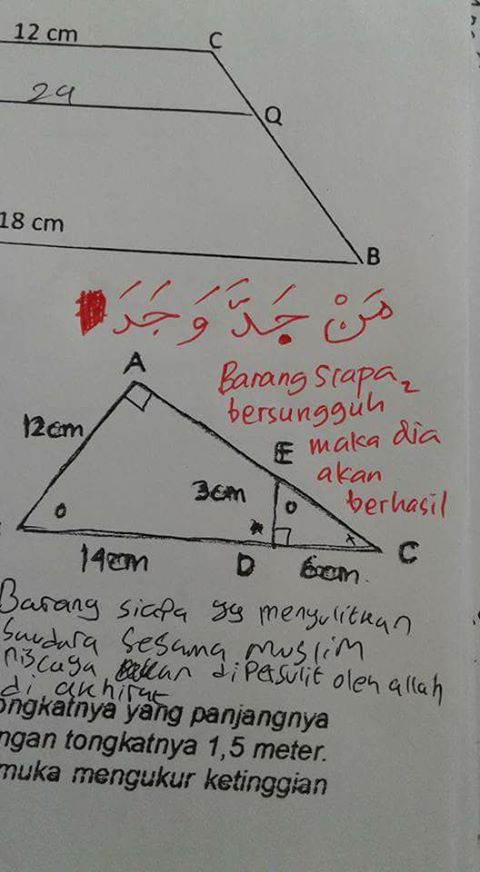 12 cm
C
29
Q
18 cm
B
مَنْ جَدَّ وَجَدَ
A
Barang siapa2
bersungguh
maka dia
akan
berhasil
12cm
E
3cm
o
o
*
x
C
14cm
D
6cm.
Barang siapa yg mengulitkan
Saudara sesama muslim
niscaya akan dipersulit oleh allah
di akhirat
ongkatnya yang panjangnya
ngan tongkatnya 1,5 meter.
muka mengukur ketinggian